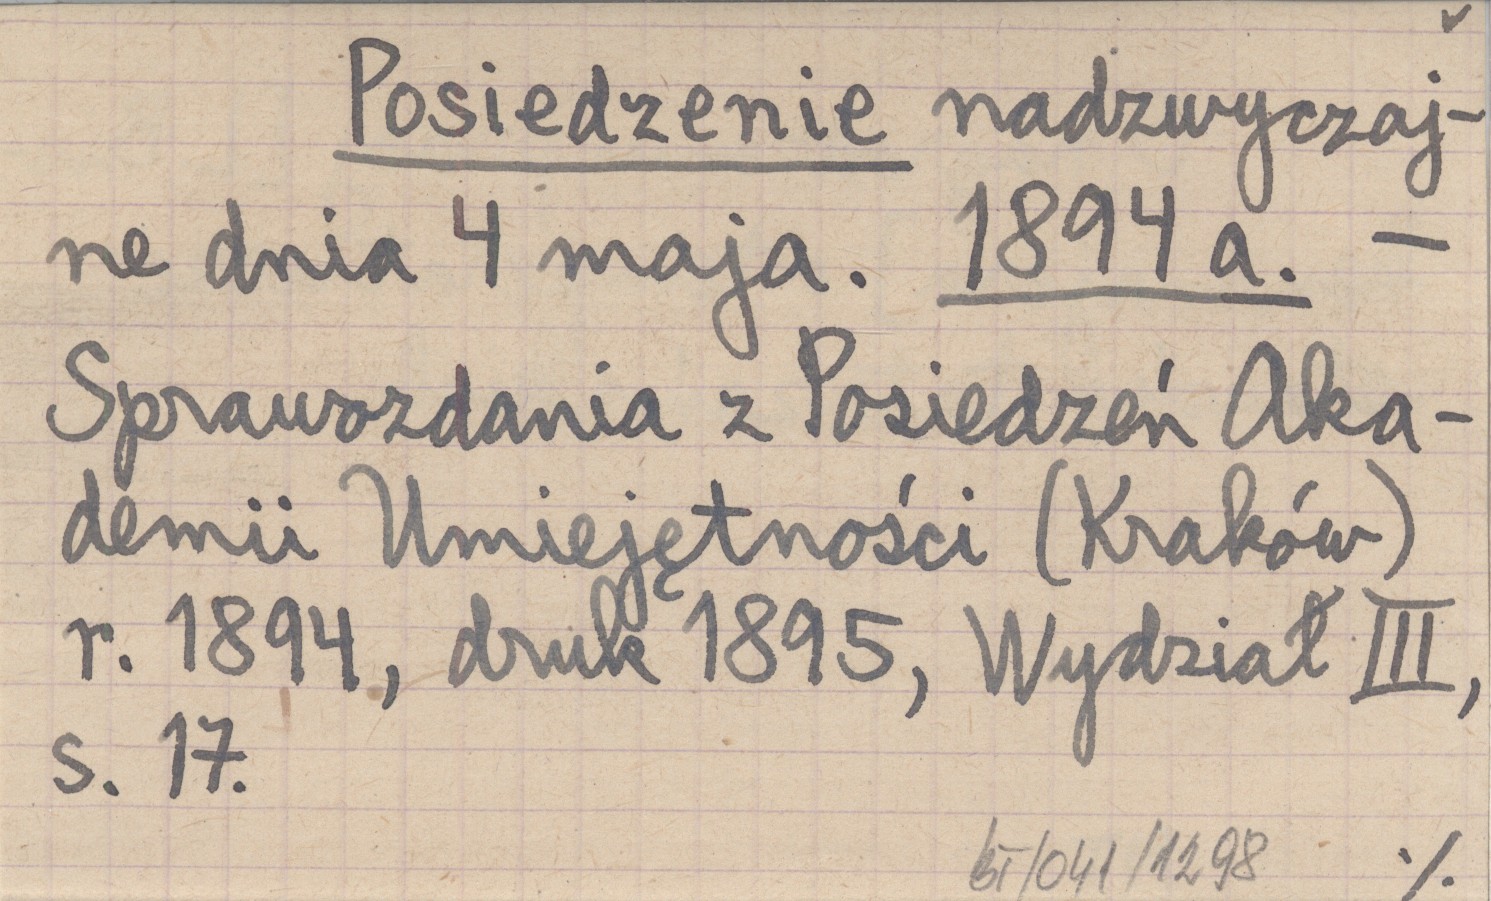 Posiedzenie nadzwyczaj-
ne dnia 4 maja. 1894 a. —
Sprawozdania z Posiedzeń Aka-
demii Umiejętności (Kraków)
r. 1894, druk 1895, Wydział III,
s. 17.
/041/1298 ./.